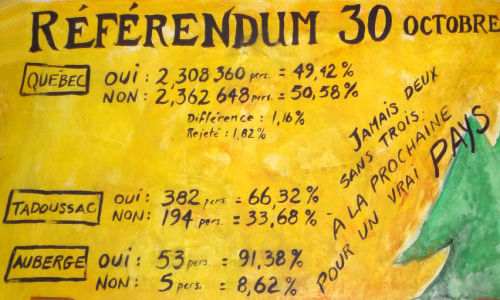 RÉFÉRENDUM 30 OCTOBRE
QUÉBEC OUI : 2,308 360 pers. = 49,42%
NON : 2,362 648 pers. = 50,58%
Différence : 1,16%
Rejeté : 1,82%
TADOUSSAC OUI : 382 pers. = 66,32%
NON : 194 pers. = 33,68%
AUBERGE OUI : 53 pers. = 91,38%
NON : 5 pers. = 8,62%
JAMAIS DEUX
SANS TROIS :
A LA PROCHAINE
POUR UN VRAI PAYS